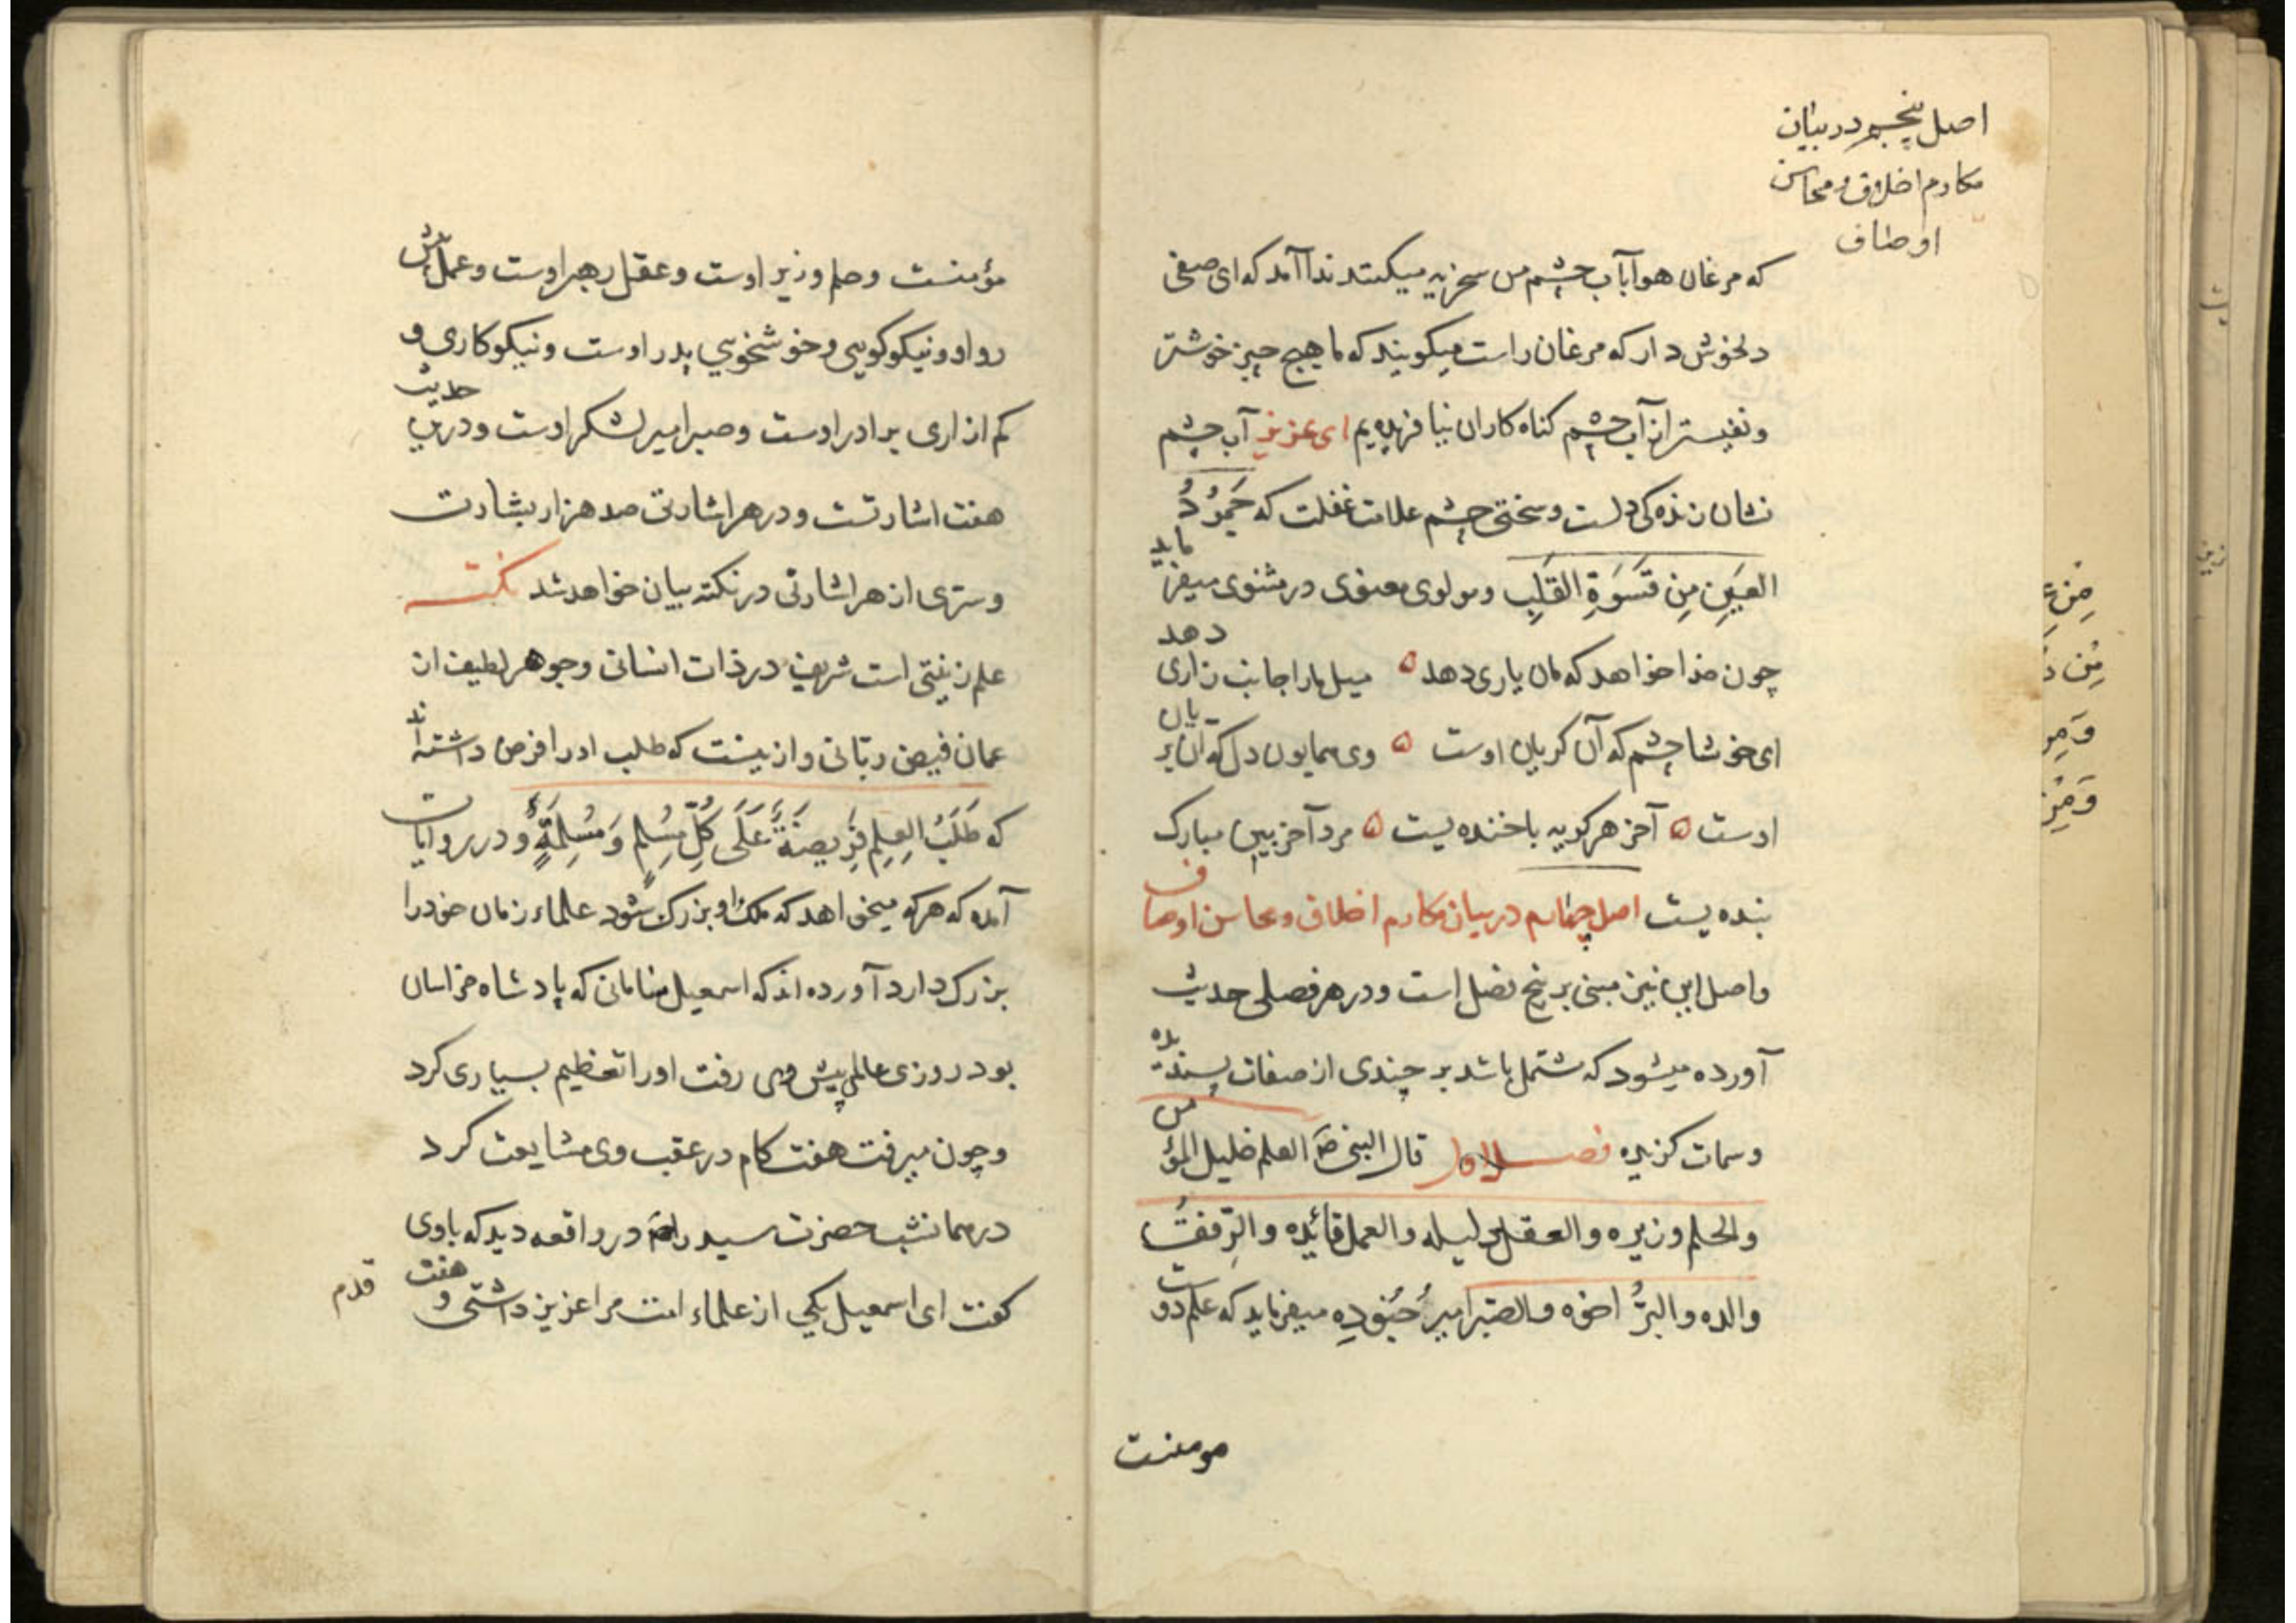 اصل پنجم در بیان
مکارم اخلاق و محاسن
اوصاف
که مرغان هوا بآب چشم من سخریه میکنند ندا آمد که ای صفی
دلخوش دار که مرغان راست میکویند که ما هیچ چیز خوشتر
و نفیستر از آب چشم کناه کاران نیافریدیم ای عزیز آب چشم
نشان زنده کی دلست و سختی چشم علامت غفلت که جَمُودُ
العَینِ مِن قَسَوَةِ القَلبِ و مولوی معنوی در مثنوی میفرماید
چون خدا خواهد که مان یاری دهد ه میل ما را جانب زاری دهد
ای خوشا چشم که آن کریان اوست ه وی همایون دل که آن بریان
اوست ه آخر هر کریه با خنده یست ه مرد آخر بین مبارک
بنده یست اصل چهارم در بیان مکارم اخلاق و محاسن اوصاف
و اصل این نیز مبنی بر پنج فصل است و در هر فصلی حدیث
آورده میشود که مشتمل باشد بر چندی از صفات پسندیده
و سمات کزیده فصل الاول قال النبی صَ العلم خلیل المؤمن
والحلم وزیره والعقل دلیله والعمل قائده والرِّفقُ
والده والبرُّ اخوه والصّبر امیرُ جُنُودِه میفرماید که علم دوست
مومنست
مؤمنست و حلم وزیر اوست و عقل رهبر اوست و عملش
رواد و نیکوکویی و خوشخویی پدر اوست و نیکوکاری و
کم ازاری برادر اوست و صبر امیر لشکر اوست و درین حدیث
هفت اشارتست و در هر اشارتی صد هزار بشارت
و سرّی از هر اشارتی در نکته بیان خواهد شد نکته
علم زینتی است شریف در ذات انسانی و جوهر لطیف از
عمان فیض ربّانی و از ینست که طلب او را فرض داشته اند
که طَلَبُ العِلمِ فَرِیضَةٌ عَلَی کُلِّ مُسلِمٍ وَ مُسلِمَةٍ و در روایات
آمده که هرکه میخواهد که ملک او بزرک شود علماء زمان خود را
بزرک دارد آورده اند که اسمعیل سامانی که پادشاه خراسان
بود روزی عالمی پیش وی رفت او را تعظیم بسیاری کرد
و چون میرفت هفت کام در عقب وی مشایعت کرد
در همانشب حضرت سید را صَ در واقعه دید که باوی
کفت ای اسمعیل یکی از علماء امت مرا عزیز داشتی و هفت
قدم
مِن
مِن
وَ مِن
وَ مِن